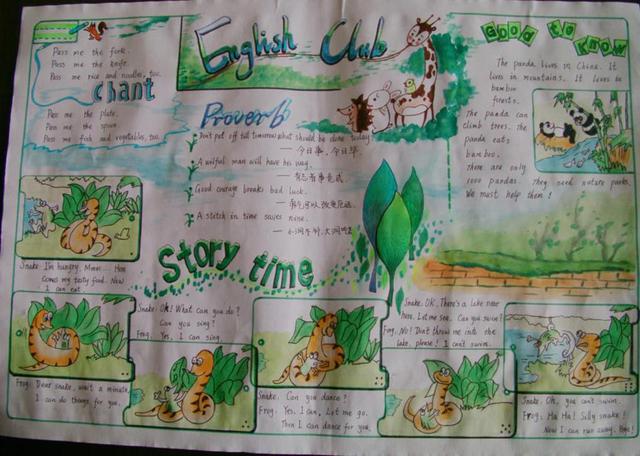 English Club
Pass me the fork.
Pass me the knife.
Pass me rice and noodles, too.
Chant
Pass me the plate.
Pass me the spoon.
Pass me fish and vegetables, too.
Proverb
Don't put off till tomorrow what should be done today.
— 今日事，今日毕.
A wilful man will have his way.
— 有志者事竟成.
Good courage breaks bad luck.
A stitch in time saves nine.
Good to know
The panda lives in China. It
lives in mountains. It lives in
bamboo
forests.
The panda can
climb trees. The
panda eats
bamboo.
There are only
1000 pandas. They need nature parks.
We must help them!
Story time
Snake: I'm hungry. Mmm... Here
comes my tasty food. Now
I can eat.
Frog: Dear snake, wait a minute.
I can do things for you.
Snake: Oh! What can you do?
Can you sing?
Frog: Yes, I can sing.
Snake: Can you dance?
Frog: Yes, I can. Let me go.
Then I can dance for you.
Snake: OK. There's a lake near
here. Let me see. Can you swim?
Frog: No! Don't throw me into the
lake, please! I can't swim.
Snake: Oh, you can't swim.
Frog: Ha Ha! Silly snake!
Now I can run away. Bye!